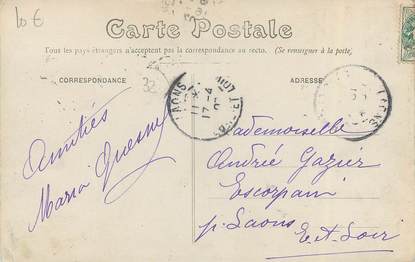 10 €
Carte Postale
Tous les pays étrangers n'acceptent pas la correspondance au recto. (Se renseigner à la poste)
CORRESPONDANCE
ADRESSE
32
LAONS
17-4
Amitiés
Maria Quesney
Mademoiselle
Andrée Gazier
Escorpain
p. Laons
E. et. Loir